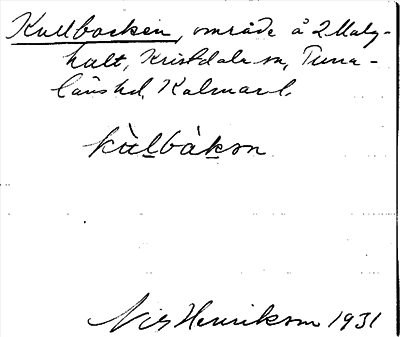 Kullbacken, område å 2 Malg-
hult, Kristdala sn, Tuna-
läns hd, Kalmar l.
kùlbákǝn
Nils Henrikson 1931